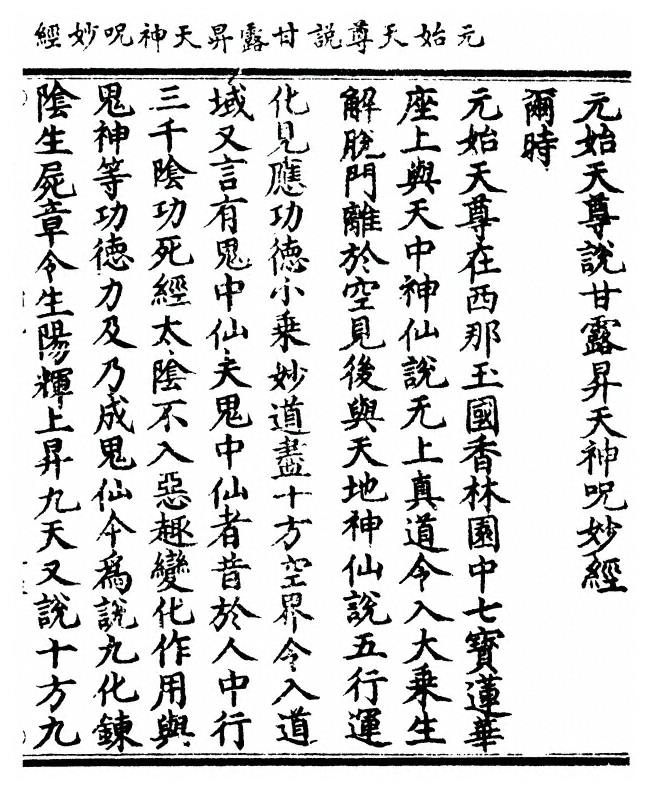 元始天尊說甘露昇天神呪妙經
元始天尊說甘露昇天神呪妙經
爾時
元始天尊在西那玉國香林園中七寶蓮華
座上與天中神仙說无上真道令入大乘生
解脫門離於空見後與天地神仙說五行運
化見應功德小乘妙道盡十方空界令入道
域又言有鬼中仙夫鬼中仙者昔於人中行
三千陰功死經太陰不入惡趣變化作用與
鬼神等功德力及乃成鬼仙今爲說九化鍊
陰生屍章令生陽輝上昇九天又說十方九